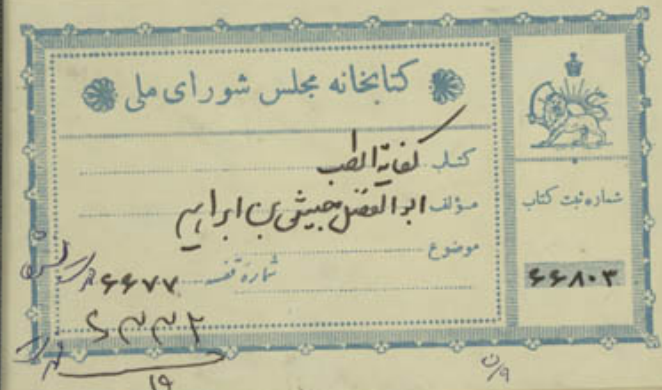 کتابخانه مجلس شورای ملی
کتاب کفایة الطب
مؤلف ابوالفضل حبیشی بن ابراهیم
موضوع
شماره قفسه ۶۶۷۷
۱۹
شماره ثبت کتاب
۶۶۸۰۳